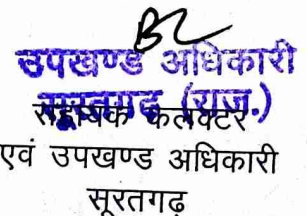 उपखण्ड अधिकारी
सूरतगढ़ (राज.)
सहायक कलक्टर
एवं उपखण्ड अधिकारी
सूरतगढ़